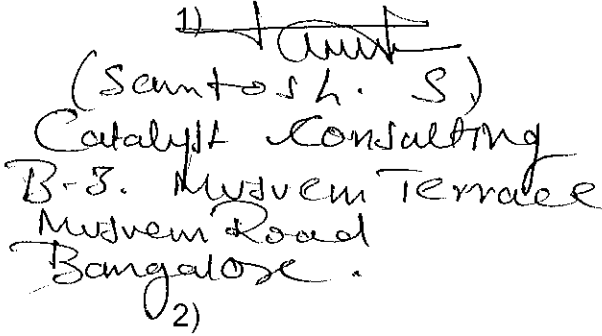 1)
(Santosh. S)
Catalyst Consulting
B-3. Museum Terrace
Museum Road
Bangalore.
2)